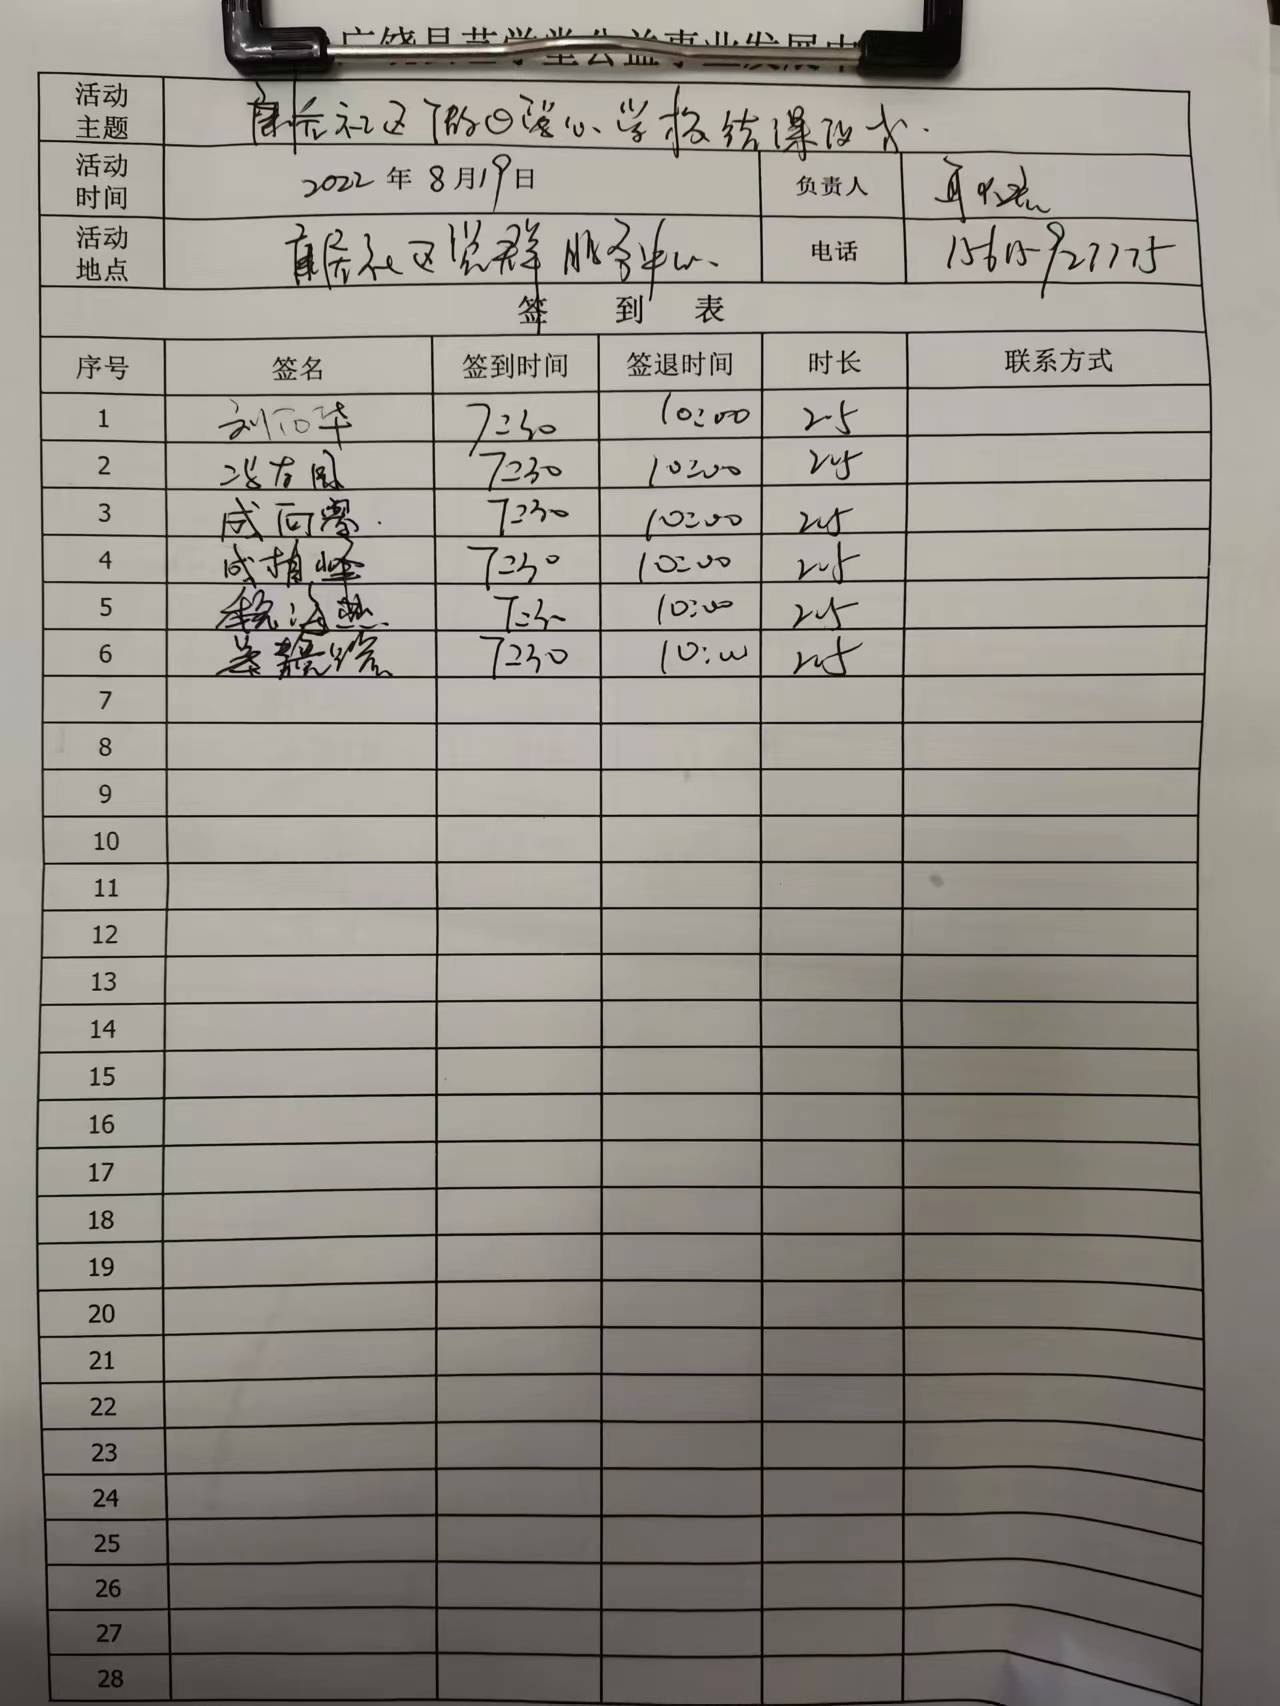 广饶县芸学堂公益事业发展中
活动主题 社区假日爱心学校结课仪式.
活动时间 2022年8月19日 负责人
活动地点 社区党群服务中心 电话 15615927775
签到表
序号 签名 签到时间 签退时间 时长 联系方式
1 7:30 10:00 2.5
2 7:30 10:00 2.5
3 成 7:30 10:00 2.5
4 成 7:30 10:00 2.5
5 7:30 10:00 2.5
6 7:30 10:00 2.5
7
8
9
10
11
12
13
14
15
16
17
18
19
20
21
22
23
24
25
26
27
28